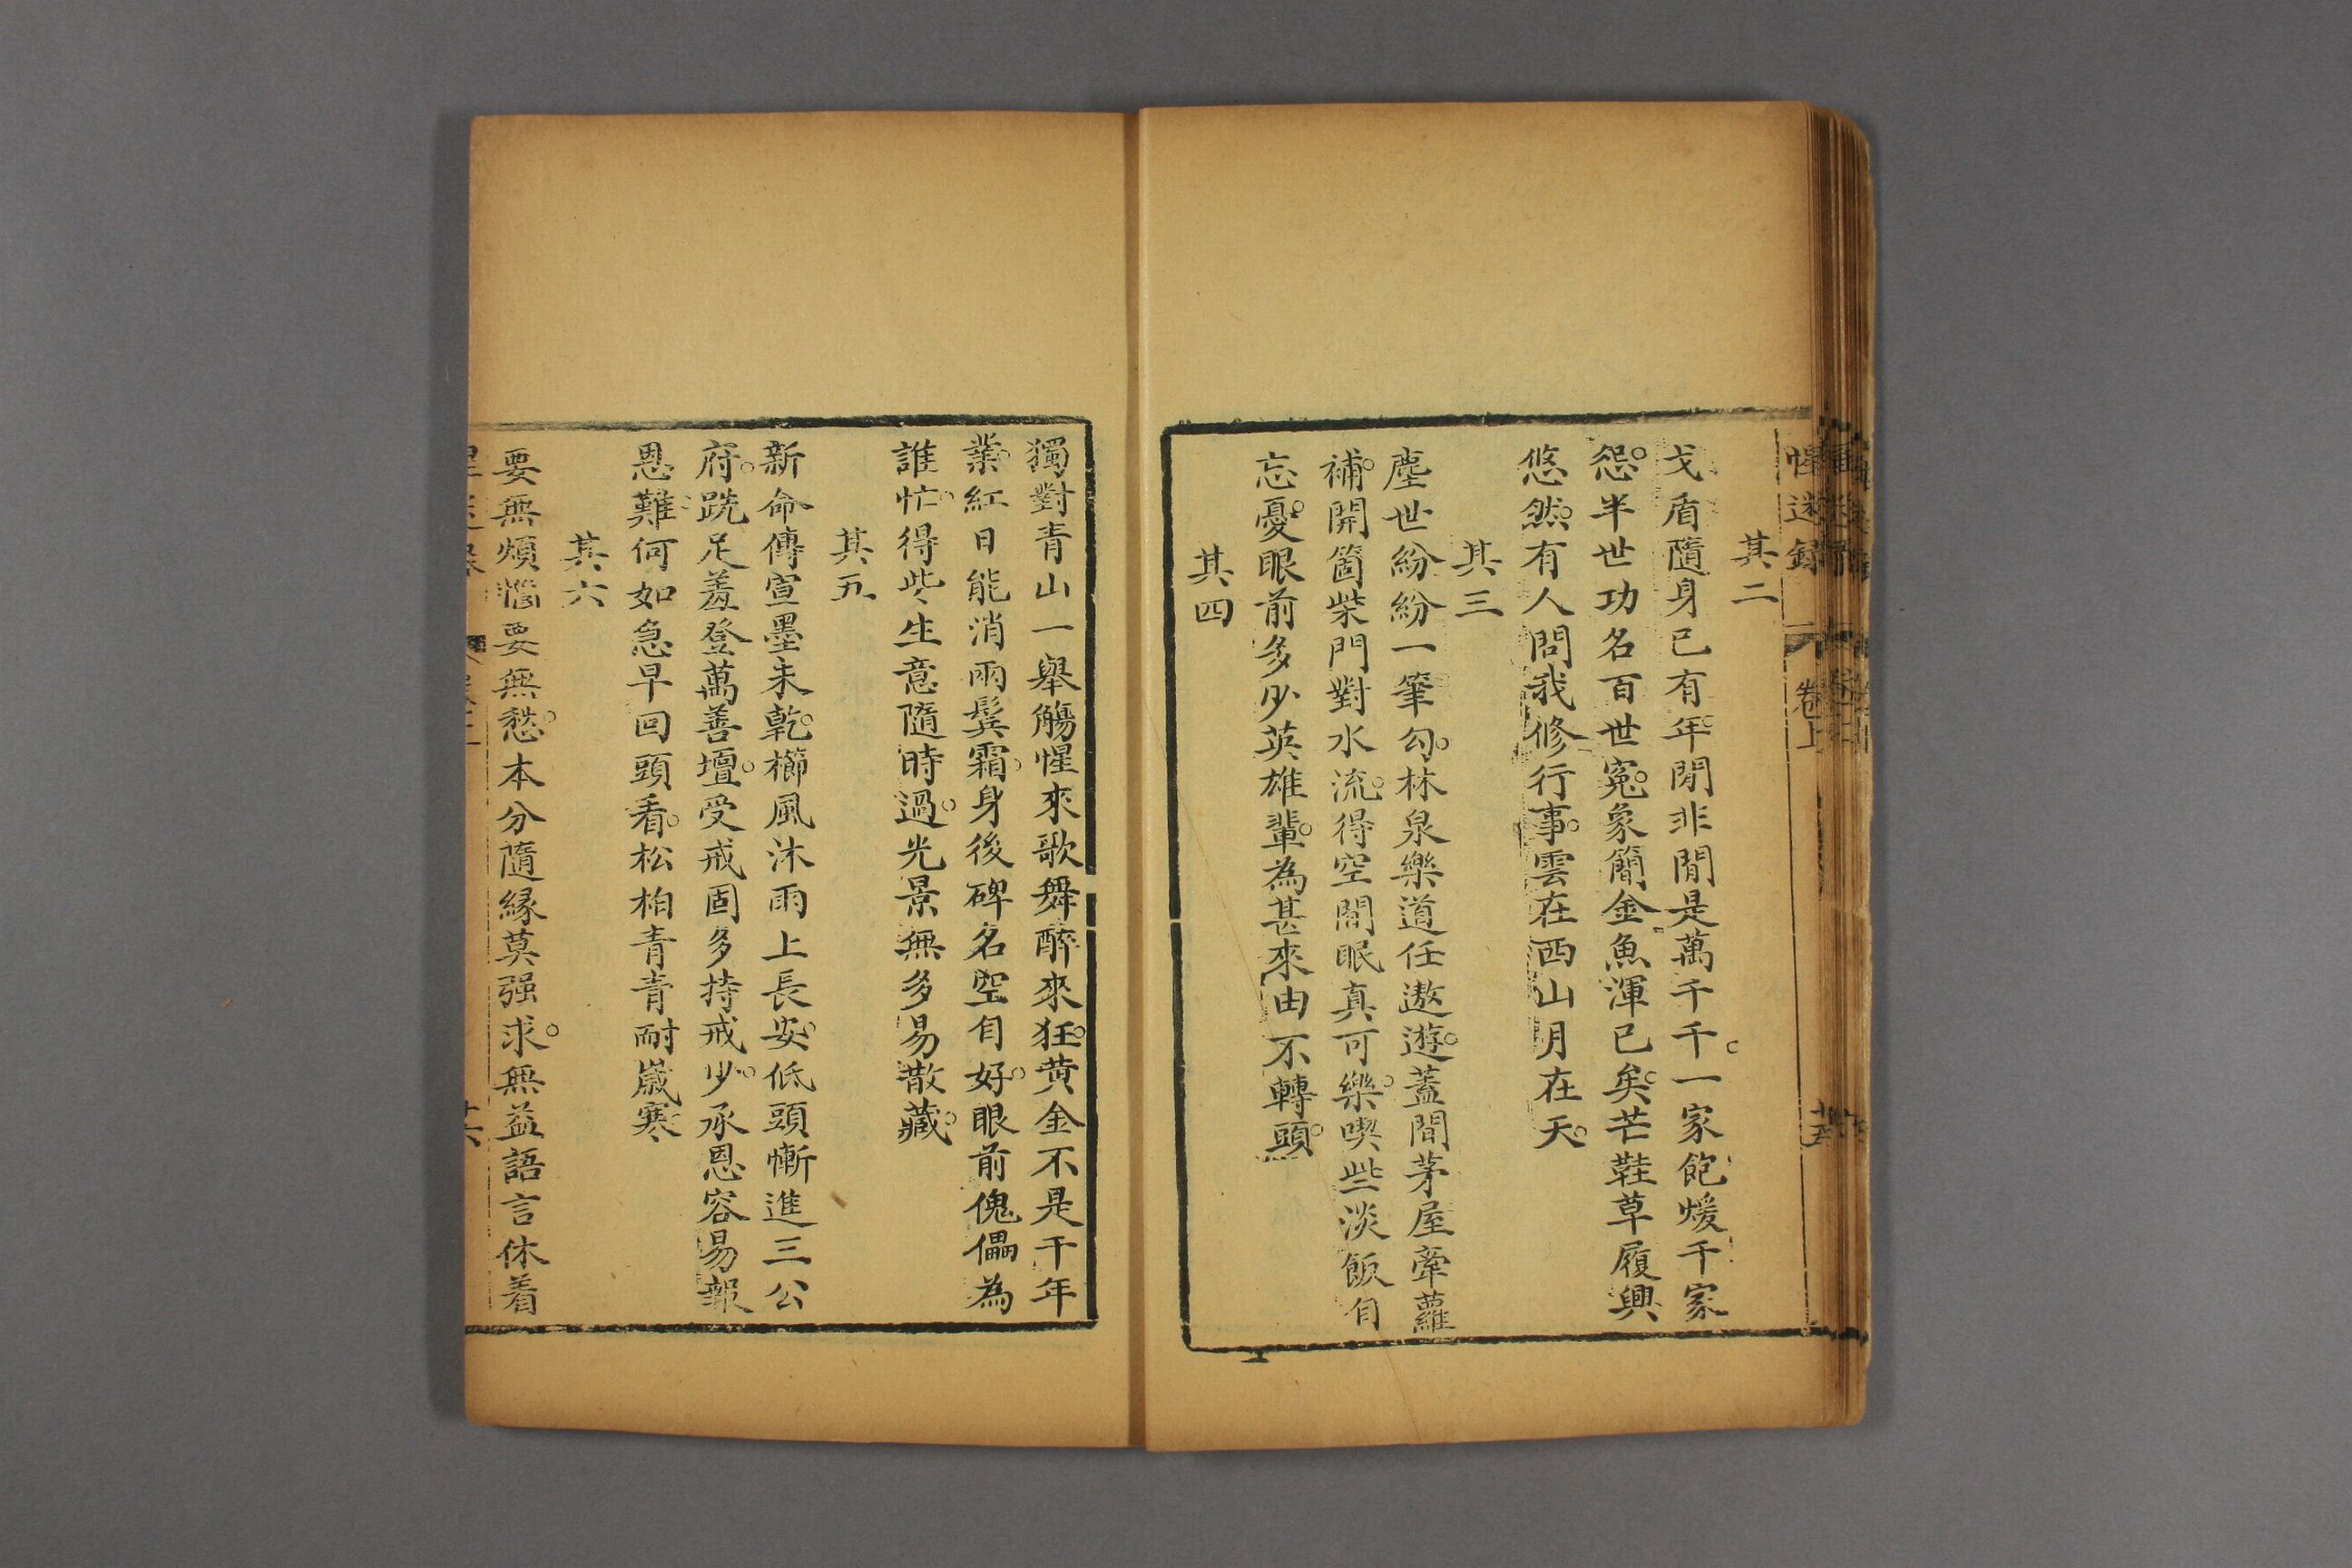 惺迷録
卷上
其二
戈盾隨身已有年閒非閒是萬千千一家飽煖千家
怨半世功名百世寃象簡金魚渾已矣芒鞋草履興
悠然有人問我修行事雲在西山月在天
其三
塵世紛紛一筆勾林泉樂道任遨遊蓋間茅屋牽蘿
補開箇柴門對水流得空閒眠真可樂喫些淡飯自
忘憂眼前多少英雄輩為甚來由不轉頭
其四
獨對青山一舉觴惺來歌舞醉來狂黄金不是千年
業紅日能消兩鬂霜身後碑名空自好眼前傀儡為
誰忙得些生意隨時過光景無多易散藏
其五
新命傳宣墨未乾櫛風沐雨上長安低頭慚進三公
府跣足羞登萬善壇受戒固多持戒少承恩容易報
恩難何如急早回頭看松柏青青耐嵗寒
其六
要無煩惱要無愁本分隨緣莫强求無益語言休着